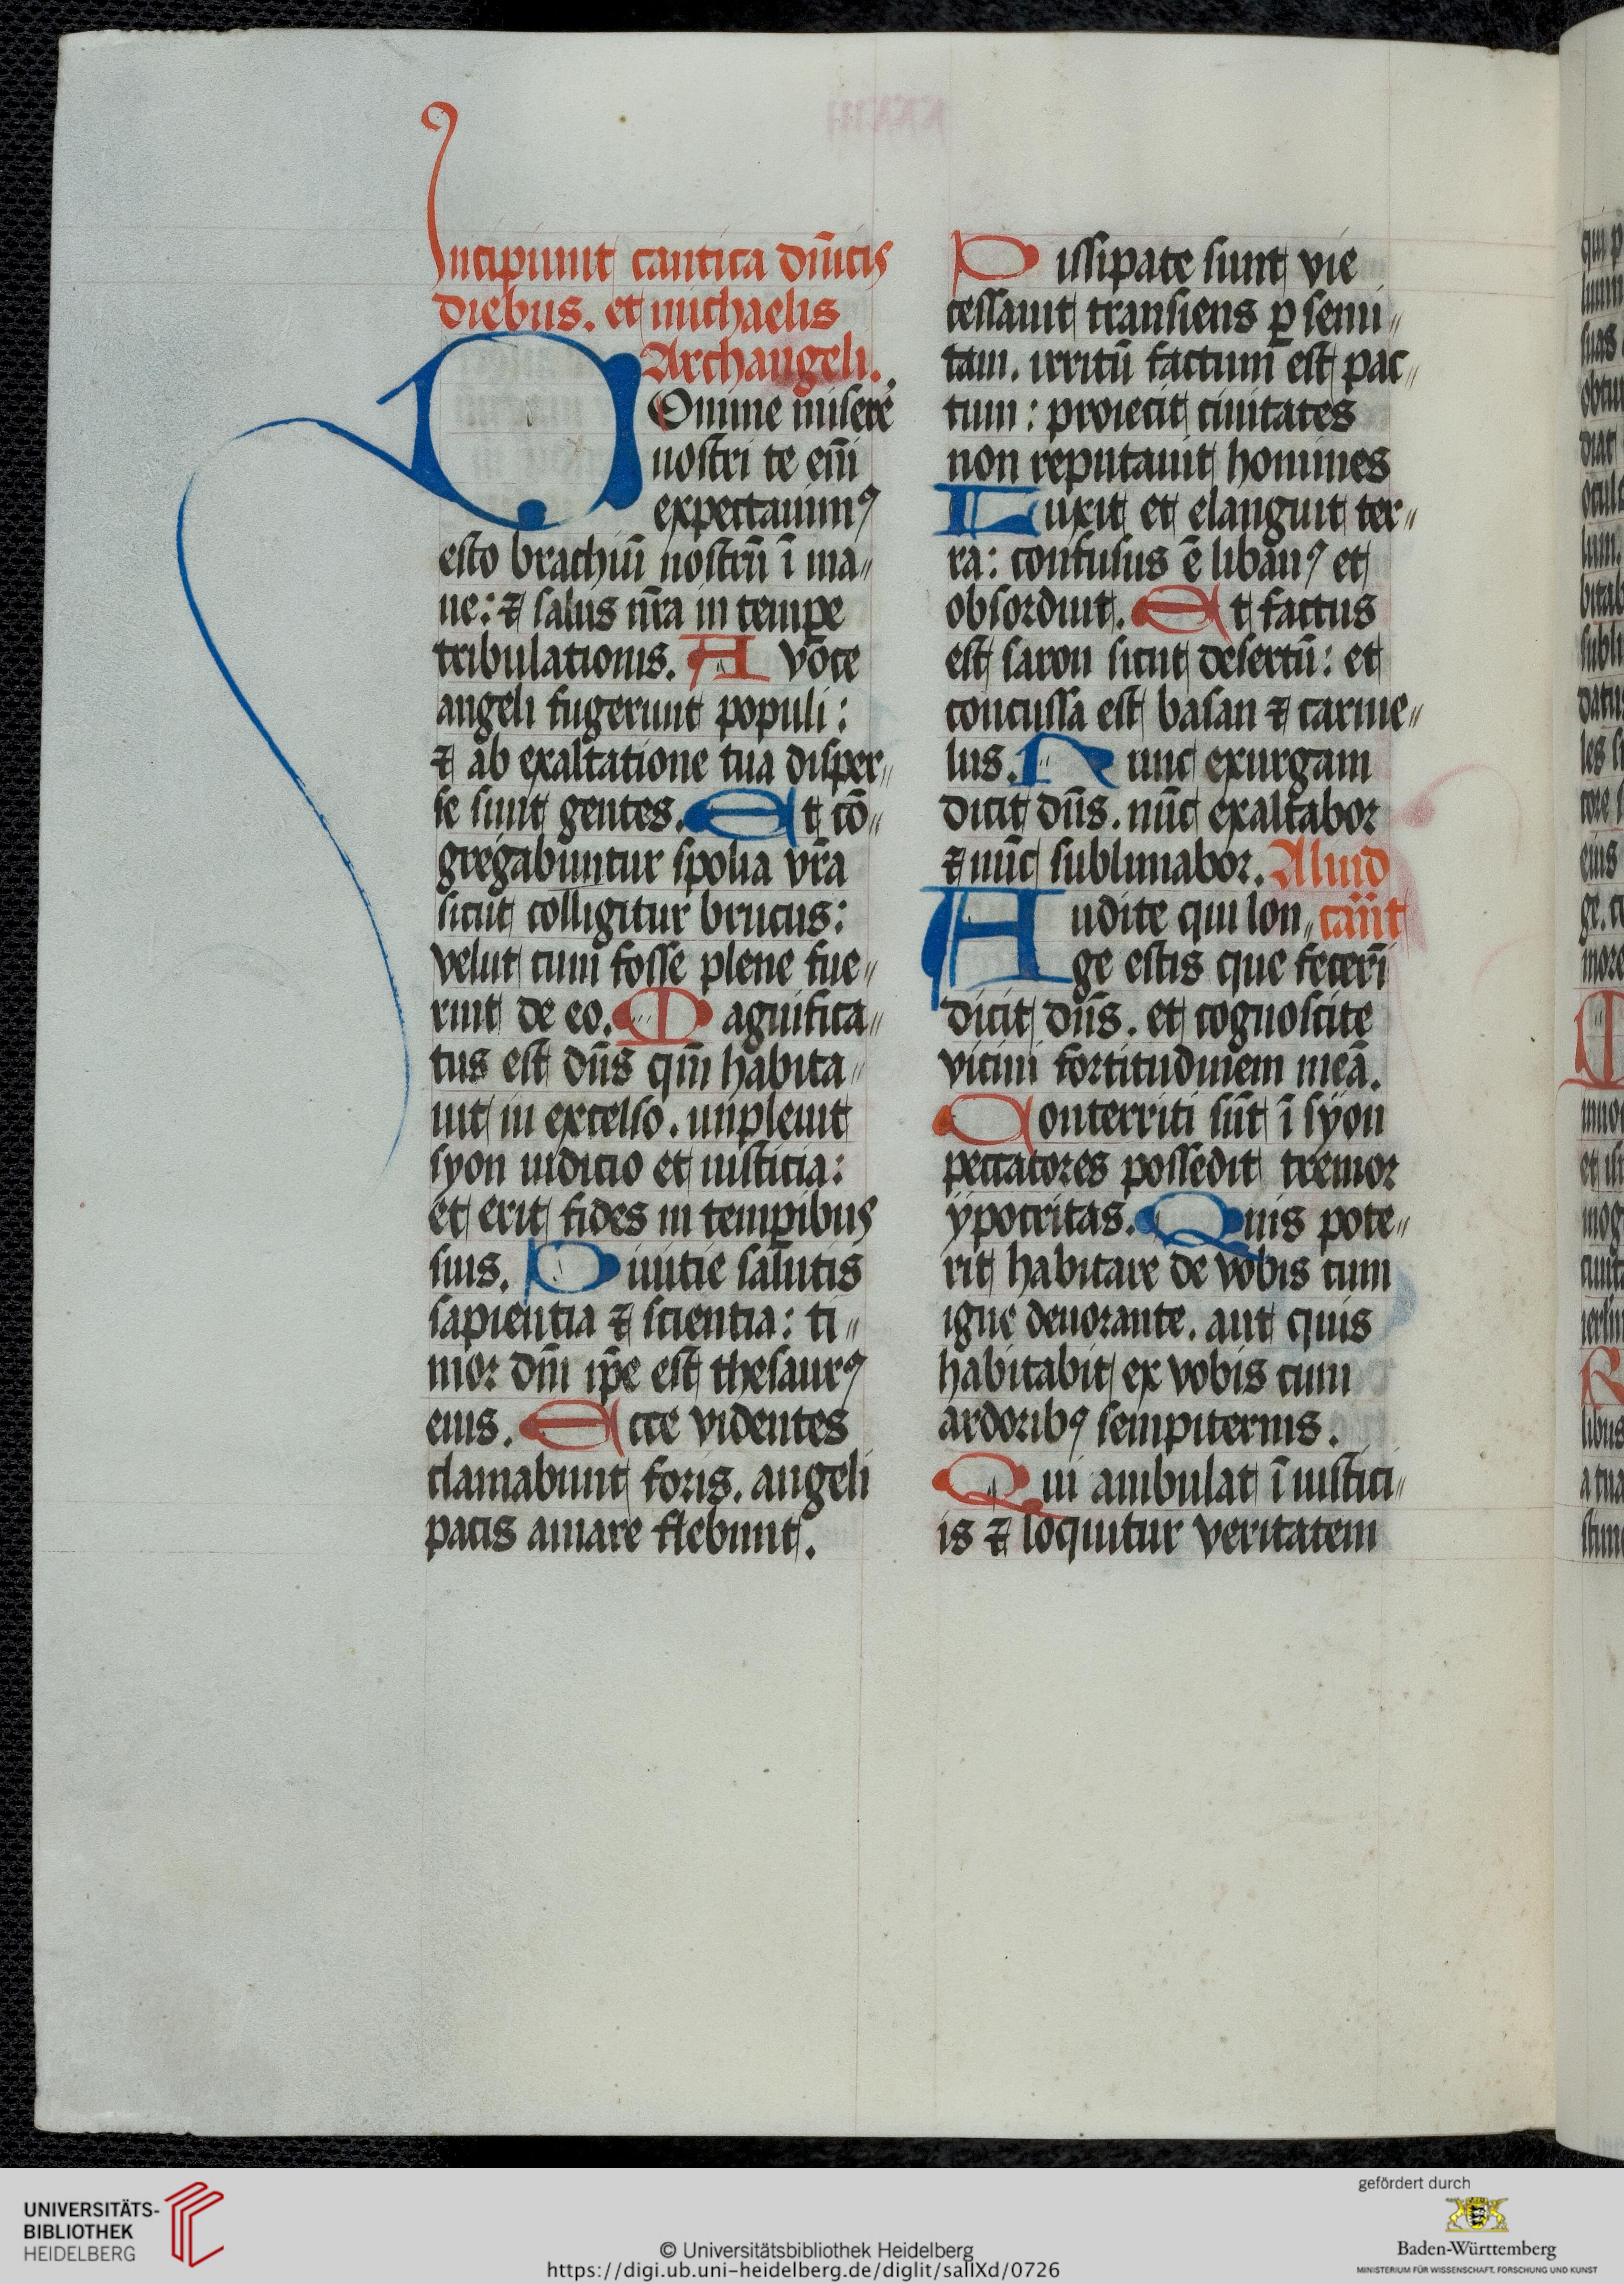 Incipiunt cantica dn̄icis
diebus. et michaelis
Archangeli.
DOmine miserē
nostri te em̄
expectauimꝰ
esto brachiū nostrū ī ma„
ne: ⁊ salus nr̄a in tempe
tribulationis. A voce
angeli fugerunt populi:
⁊ ab exaltatione tua disper„
se sunt gentes. Et cō„
gregabuntur spolia vr̄a
sicut colligitur brucus:
velut cum fosse plene fue„
rint de eo. Magnifica„
tus est dn̄s qm̄ habita„
uit in excelso. impleuit
syon iudicio et iusticia:
et erit fides in temꝑibus
suis. Diuitie salutis
sapientia ⁊ scientia: ti„
mor dn̄i ip̄e est thesaurꝰ
eius. Ecce videntes
clamabunt foris. angeli
pacis amare flebunt.
Dissipate sunt vie
cessauit transiens ꝑ semi„
tam. irritū factum est pac„
tum: proiecit ciuitates
non reputauit homines
Luxit et elanguit ter„
ra: confusus ē libanꝰ et
obsorduit. Et factus
est saron sicut desertū: et
concussa est basan ⁊ carme„
lus. Nunc exurgam
dicit dn̄s. nūc exaltabor
⁊ nūc sublimabor. Aliud
Audite qui lon„ cān̄t
ge estis que fecerī
dicit dn̄s. et cognoscite
vicini fortitudinem meā.
Conterriti sūt ī syon
peccatores possedit tremor
ypocritas. Quis pote„
rit habitare de vobis cum
igne deuorante. aut quis
habitabit ex vobis cum
ardoribꝰ sempiternis.
Qui ambulat ī iustici„
is ⁊ loquitur veritatem
UNIVERSITÄTS-
BIBLIOTHEK
HEIDELBERG
© Universitätsbibliothek Heidelberg
https://digi.ub.uni-heidelberg.de/diglit/salIXd/0726
gefördert durch
Baden-Württemberg
MINISTERIUM FÜR WISSENSCHAFT, FORSCHUNG UND KUNST